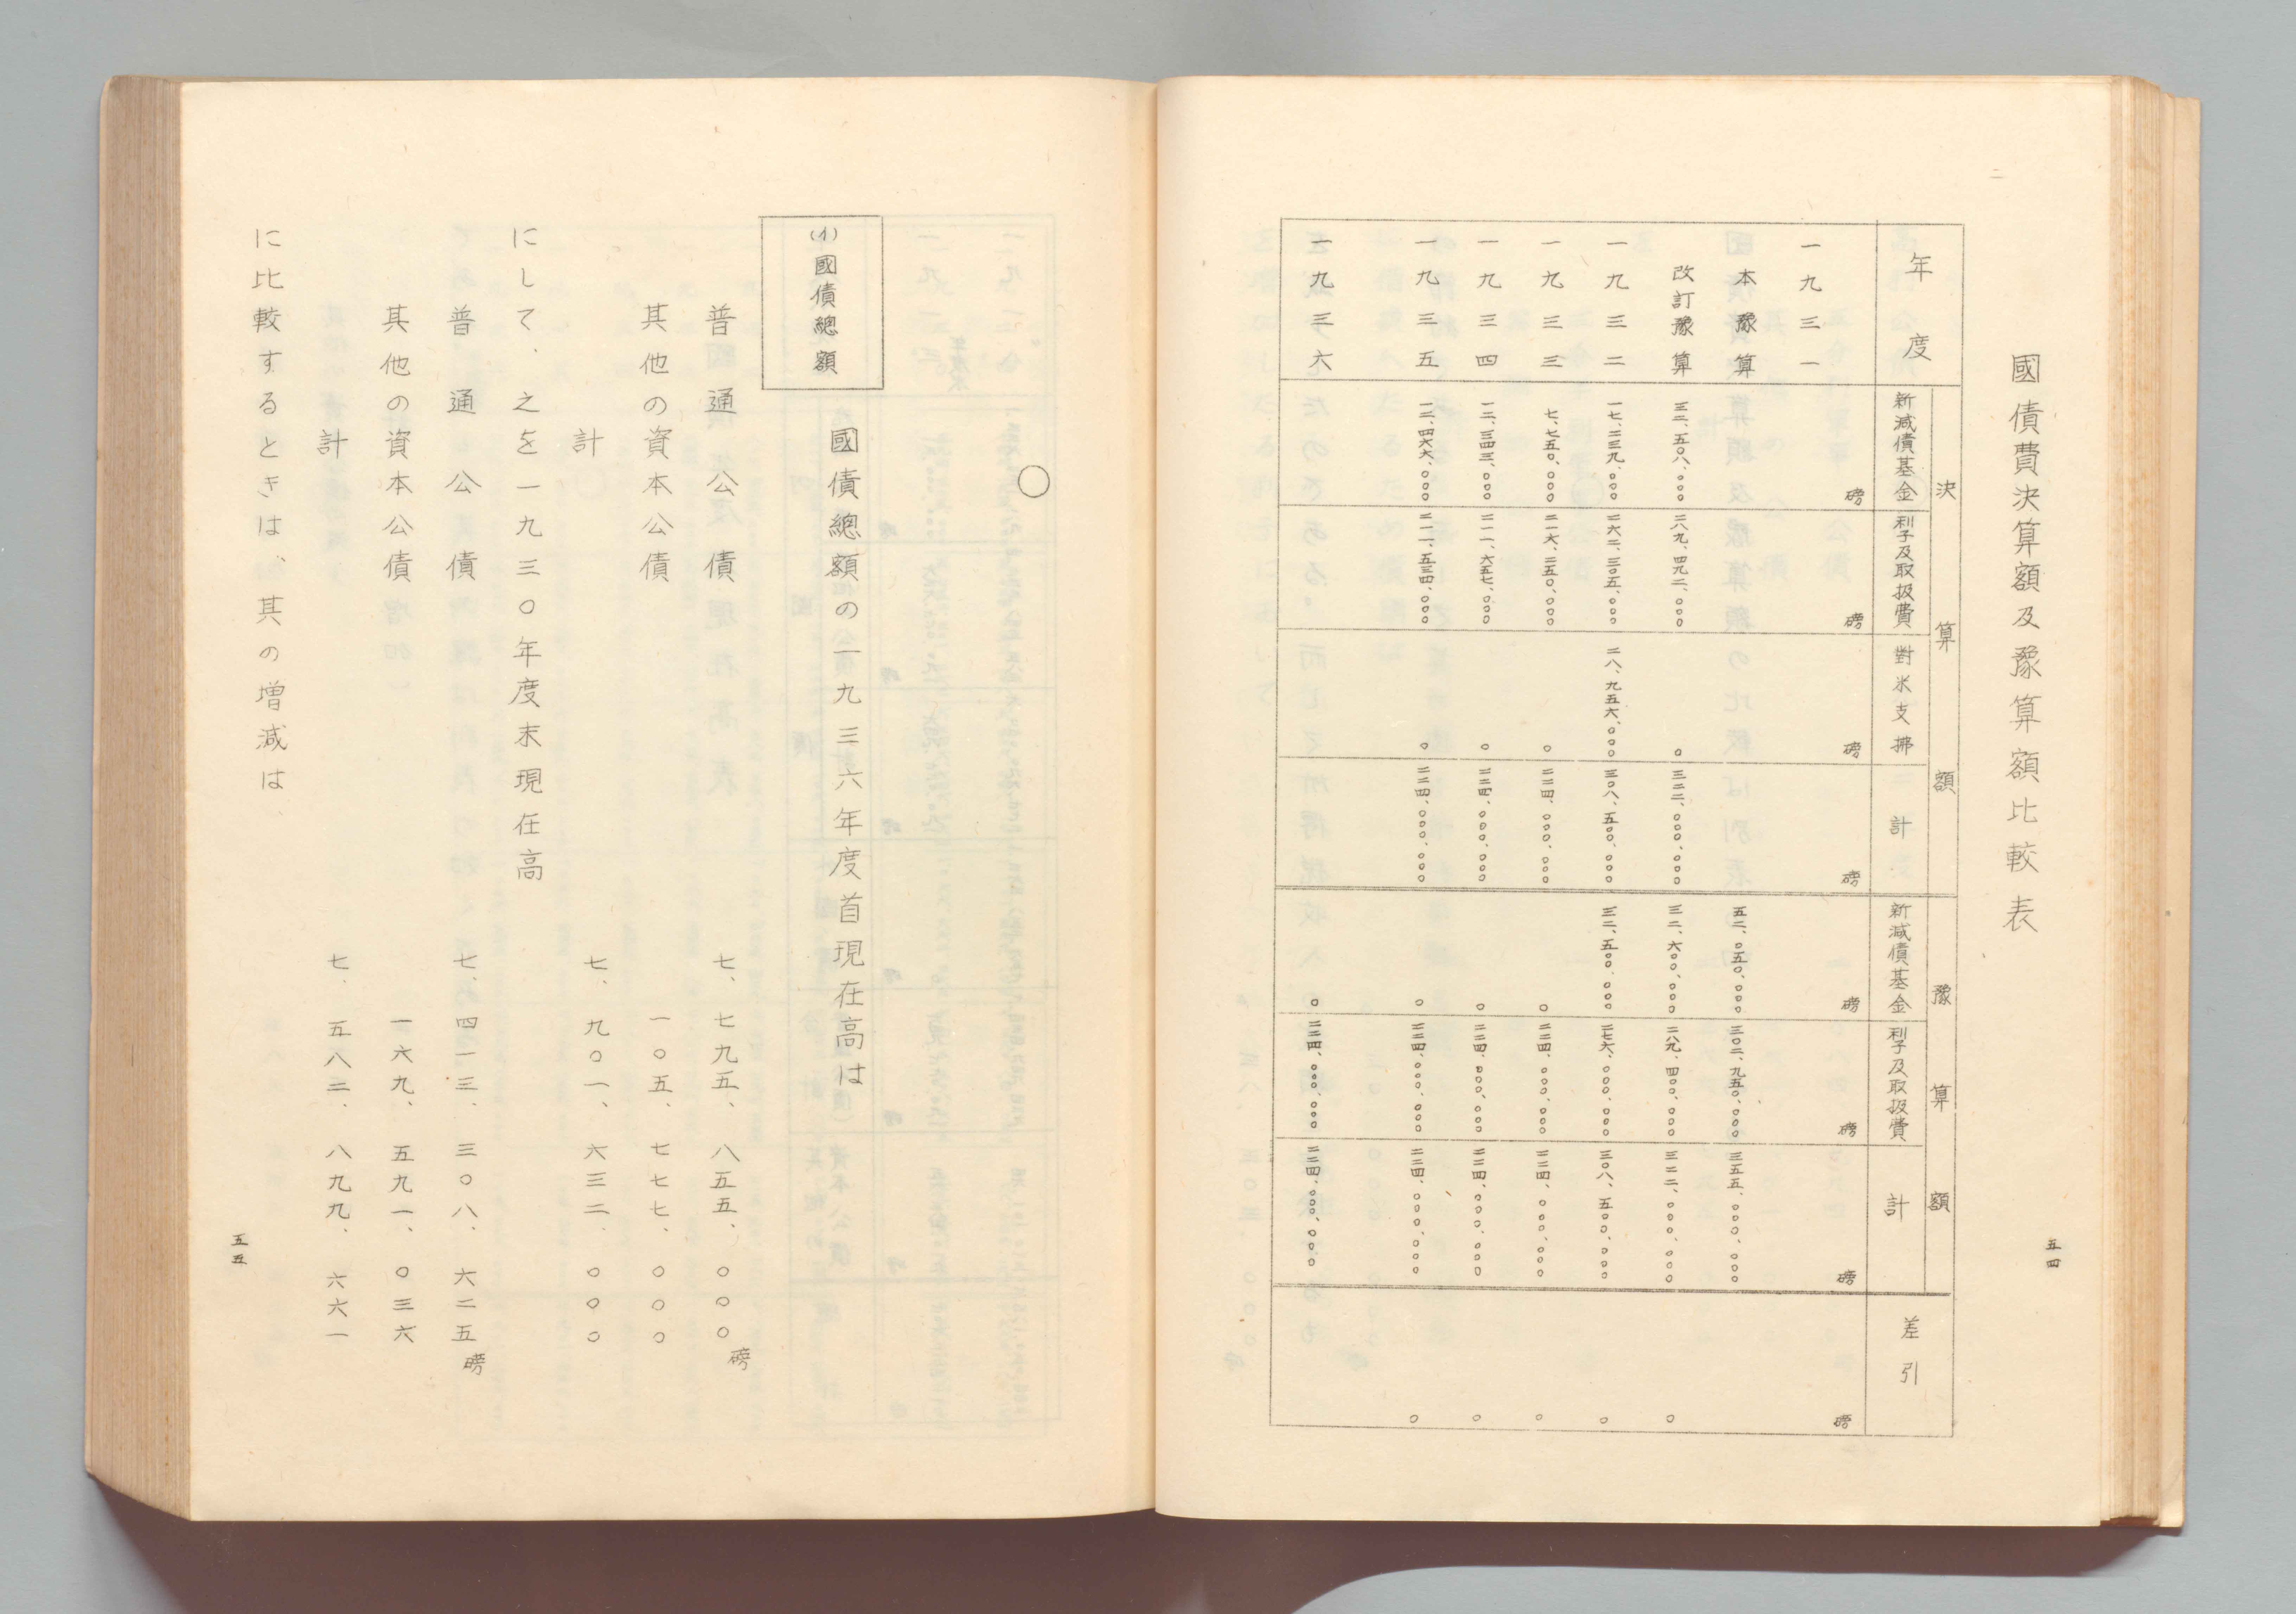 國債費決算額及豫算額比較表
年度 決算額 豫算額 差引
新減債基金 利子及取扱費 對米支拂 計 新減債基金 利子及取扱費 計
一九三一 磅 磅 磅 磅 磅 磅 磅 磅
本豫算 五二、〇五〇、〇〇〇 三〇二、九五〇、〇〇〇 三五五、〇〇〇、〇〇〇
改訂豫算 三二、五〇八、〇〇〇 二八九、四九二、〇〇〇 〇 三二二、〇〇〇、〇〇〇 三二、六〇〇、〇〇〇 二八九、四〇〇、〇〇〇 三二二、〇〇〇、〇〇〇 〇
一九三二 一七、二三九、〇〇〇 二六二、三〇五、〇〇〇 二八、九五六、〇〇〇 三〇八、五〇〇、〇〇〇 三二、五〇〇、〇〇〇 二七六、〇〇〇、〇〇〇 三〇八、五〇〇、〇〇〇 〇
一九三三 七、七五〇、〇〇〇 二一六、二五〇、〇〇〇 〇 二二四、〇〇〇、〇〇〇 〇 二二四、〇〇〇、〇〇〇 二二四、〇〇〇、〇〇〇 〇
一九三四 一二、三四三、〇〇〇 二一一、六五七、〇〇〇 〇 二二四、〇〇〇、〇〇〇 〇 二二四、〇〇〇、〇〇〇 二二四、〇〇〇、〇〇〇 〇
一九三五 一二、四六六、〇〇〇 二一一、五三四、〇〇〇 〇 二二四、〇〇〇、〇〇〇 〇 二二四、〇〇〇、〇〇〇 二二四、〇〇〇、〇〇〇 〇
一九三六 〇 二二四、〇〇〇、〇〇〇 二二四、〇〇〇、〇〇〇
五四
(イ)國債總額
國債總額の一九三六年度首現在高は
普通公債 七、七九五、八五五、〇〇〇磅
其他の資本公債 一〇五、七七七、〇〇〇
計 七、九〇一、六三二、〇〇〇
にして、之を一九三〇年度末現在高
普通公債 七、四一三、三〇八、六二五磅
其他の資本公債 一六九、五九一、〇三六
計 七、五八二、八九九、六六一
に比較するときは、其の増減は、
五五